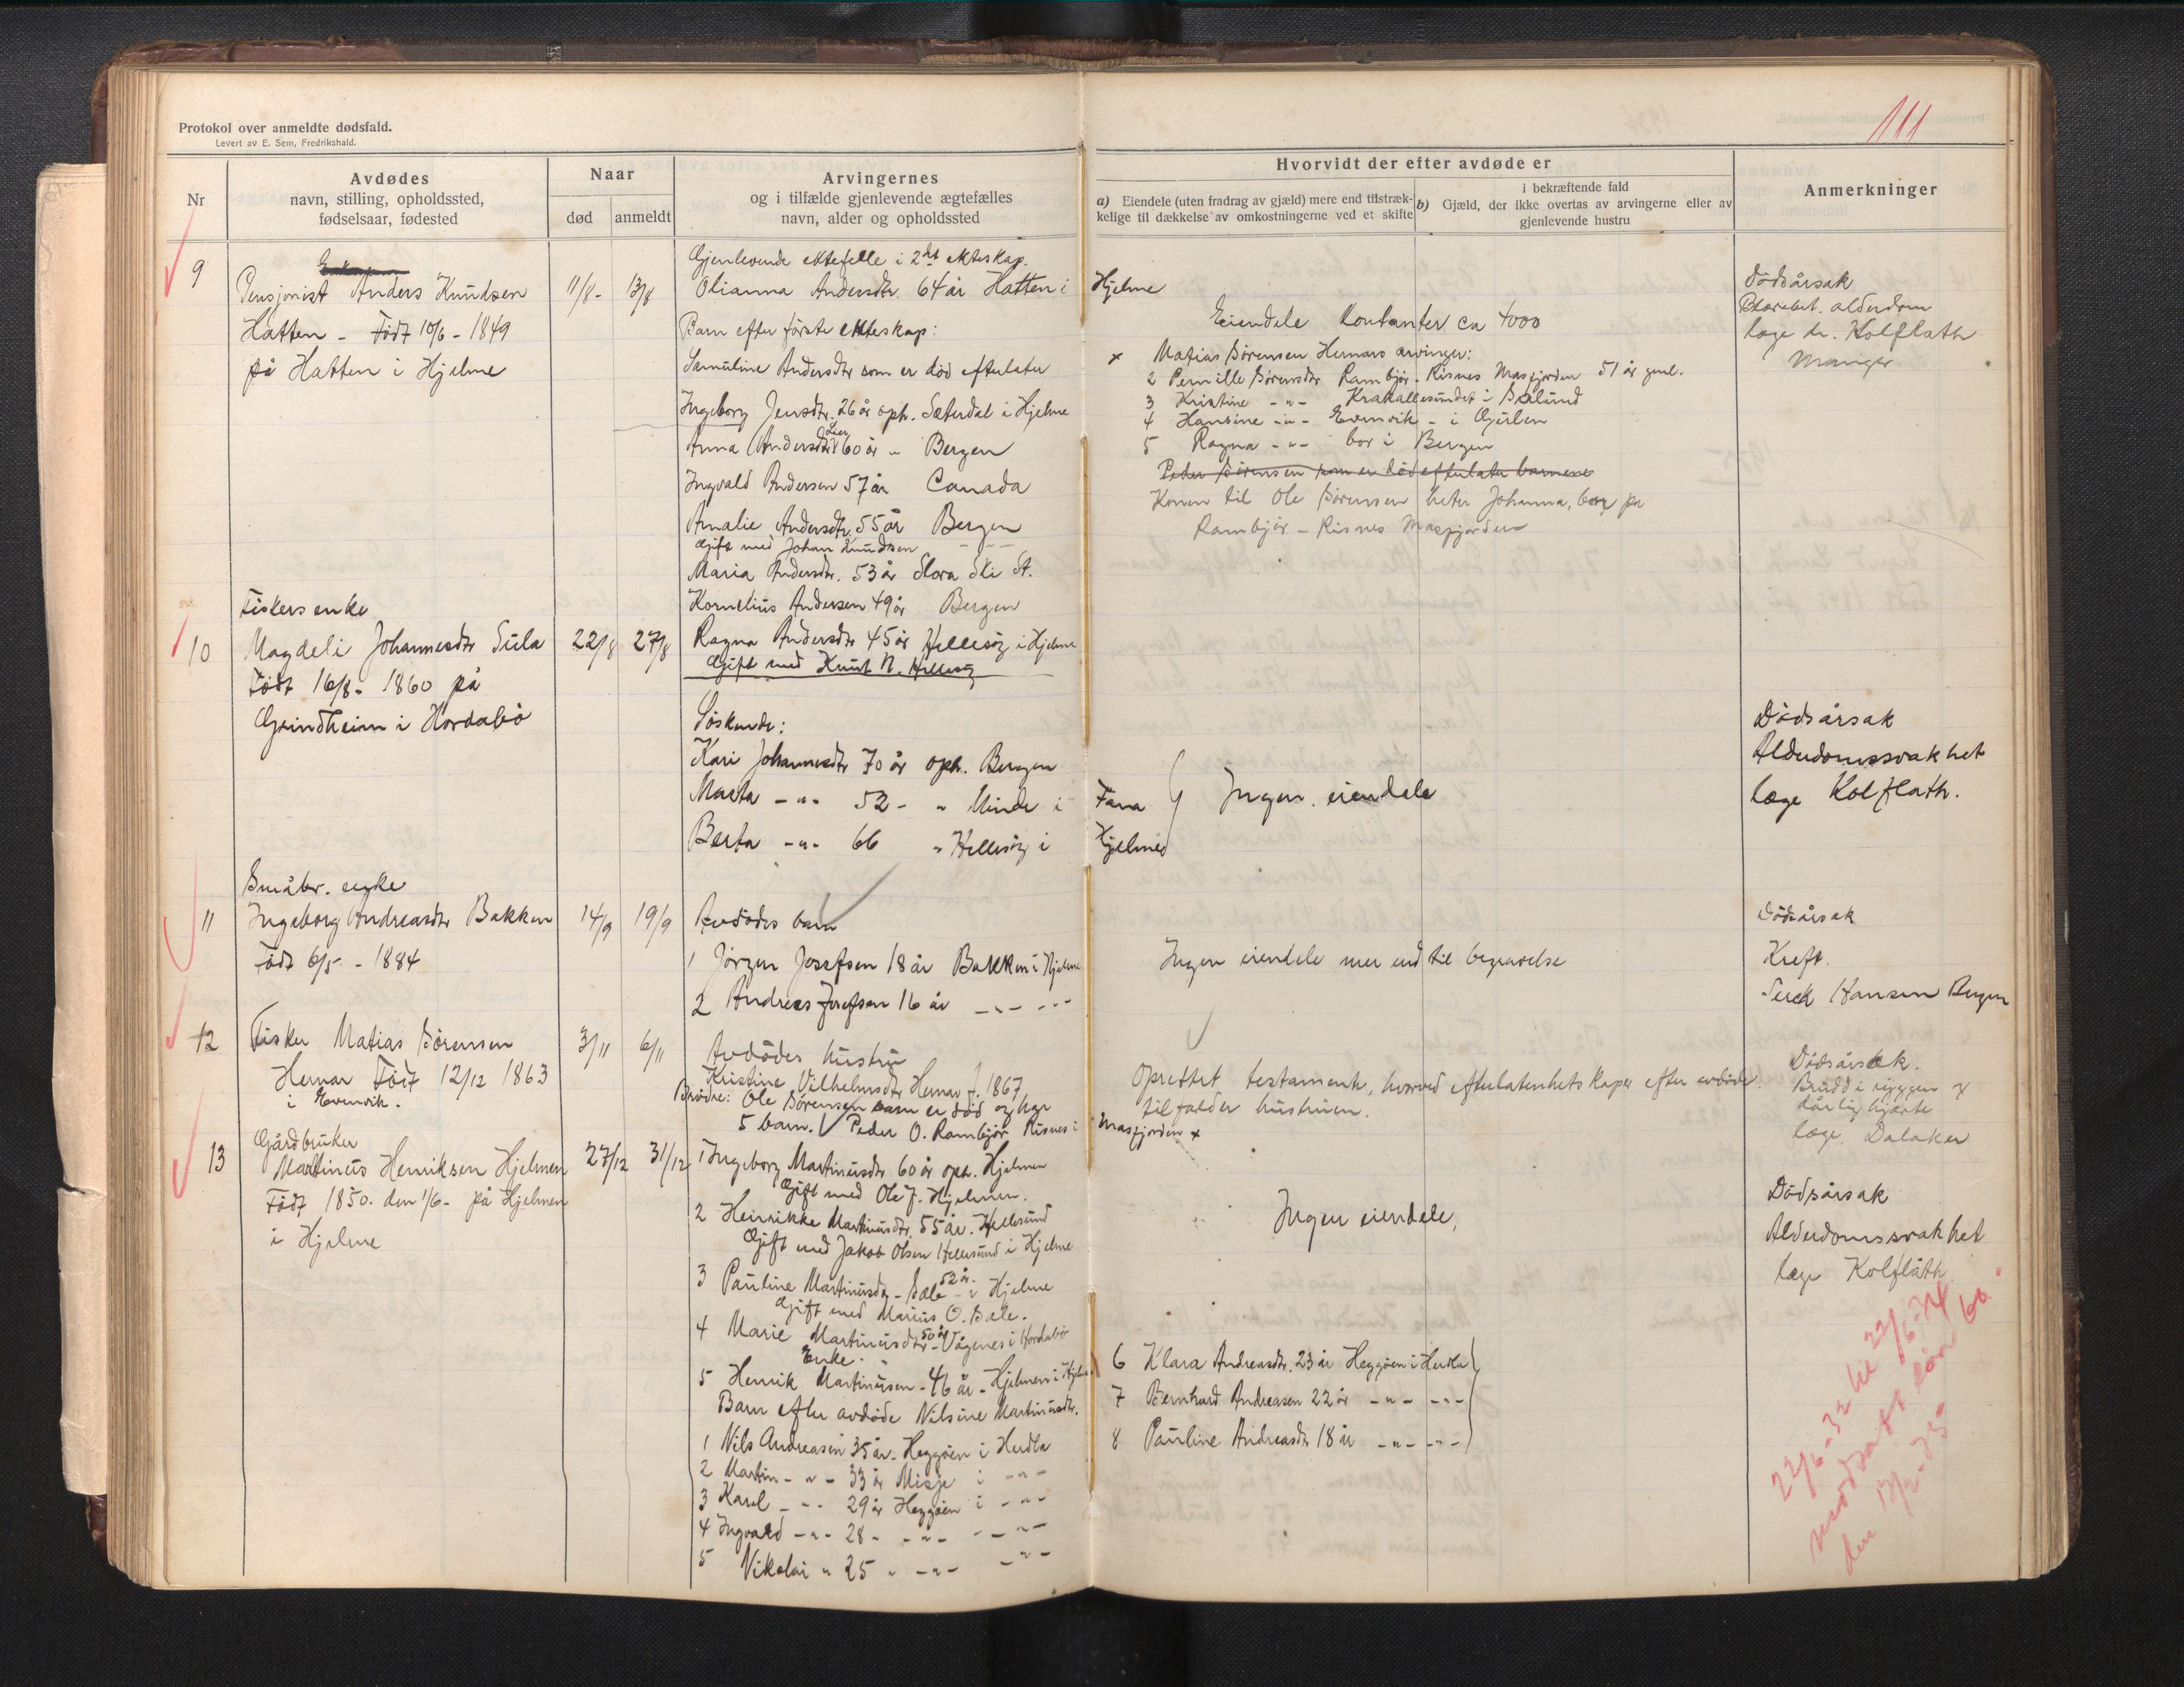 Protokol over anmeldte dødsfald.
Levert av E. Sem, Fredrikshald.
111
Nr
Avdødes
navn, stilling, opholdssted,
fødselsaar, fødested
Naar
død
anmeldt
Arvingernes
og i tilfælde gjenlevende ægtefælles
navn, alder og opholdssted
Hvorvidt der efter avdøde er
a) Eiendele (uten fradrag av gjæld) mere end tilstræk-
kelige til dækkelse av omkostningerne ved et skifte
i bekræftende fald
b) Gjæld, der ikke overtas av arvingerne eller av
gjenlevende hustru
Anmerkninger
9
Pensjonist Anders Knudsen
Hatten - Født 10/6 - 1849
på Hatten i Hjelme
11/8 - 13/8
Gjenlevende ektefelle i 2det ekteskap.
Olianna Andersdtr. 64 år Hatten i Hjelme
Barn efter første ekteskap:
Samuline Andersdtr som er död efterlater
Ingeborg Jensdtr. 26 år oph. Sæterdal i Hjelme
Anna Andersdtr 60 år " Bergen
Ingvald Andersen 57 år Canada
Amalie Andersdtr. 55 år Bergen
Gift med Johan Knudsen
Maria Andersdtr. 53 år Slora Ski St.
Kornelius Andersen 49 år Bergen
Ragna Andersdtr 45 år Hellesøy i Hjelme
Gift med Knut N. Hellesøy
Eiendele Kontanter ca 4000
x Matias Sörensen Hernars arvinger:
2 Pernille Sørensdtr Rambjör - Risnes Masfjorden 51 år gml.
3 Kristine - " - Krakallesundet i
4 Hansine - " - Evenvik - i Gulen
5 Ragna - " - bor i Bergen
Peder Sörensen som er död efterlater barnene
Konen til Ole Sørensen heter Johanna, bor på
Rambjör - Risnes Masfjorden
Dödsårsak
alderdom
læge dr. Kolflath
Manger
10
Fiskers enke
Magdeli Johannesdtr Sula
Født 16/8 - 1860 på
Grindheim i Hordabö
22/8 27/8
Søskende:
Kari Johannesdtr 70 år oph. Bergen
Marta - " - 52 - " Minde i Fana
Berta - " - 66 " Hellesøy i Hjelme
Ingen eiendele
Dödsårsak
Alderdomssvakhet
læge Kolflath.
11
Småbr. enke
Ingeborg Andreasdtr Bakken
Født 6/5 - 1884
14/9 19/9
Avdödes barn
1 Jörgen Josefsen 18 år Bakken i Hjelme
2 Andreas Josefsen 16 år - " - - " -
Ingen eiendele mer end til begravelse
Dödsårsak
Kreft.
Hansen Bergen
12
Fisker Matias Sörensen
Hernar Født 12/12 1863
i Evenvik.
3/11 6/11
Avdödes hustru
Kristine Vilhelmsdtr Hernar f. 1867
Brödre: Ole Sörensen som er död og har
5 barn. Peder O. Rambjør Risnes i Masfjorden x
Oprettet testamente, hvorved efterlatenhetskaper efter avdöde
tilfalder hustruen.
Dödsårsak.
Brudd i ryggen og
dårlig hjerte
læge Dalaker
13
Gårdbruker
Martinus Henriksen Hjelmen
Født 1850. den 1/6 - på Hjelmen
i Hjelme
27/12 31/12
1 Ingeborg Martinusdtr 60 år oph. Hjelmen
Gift med Ole J. Hjelmen.
2 Henrikke Martinusdtr. 55 år. Hellesund
Gift med Jakob Olsen Hellesund i Hjelme
3 Pauline Martinusdtr - 52 år. Bale - i Hjelme
Gift med Marius O. Bale.
4 Marie Martinusdtr 50 år - Vågenes i Hordabö
Enke.
5 Henrik Martinusen - 46 år - Hjelmen i Hjelme
Barn efter avdøde Nilsine Martinusdtr.
1 Nils Andreasen 35 år - Heggøen i Herdla
2 Martin - " - 33 år Misje i - " -
3 Karl - " - 29 år Heggøen i - " -
4 Ingvald - " - 28 - - " - - " -
5 Nikolai " 25 " - " - - " -
6 Klara Andreasdtr. 23 år Heggøen i Herdla
7 Bernhard Andreasen 22 år - " - - " -
8 Pauline Andreasdtr 18 år - " - - " -
Ingen eiendele,
Dödsårsak
Alderdomssvakhet
læge Kolflåth
22/6 - 32 til 22/6 - 34
den 13/2 - 35